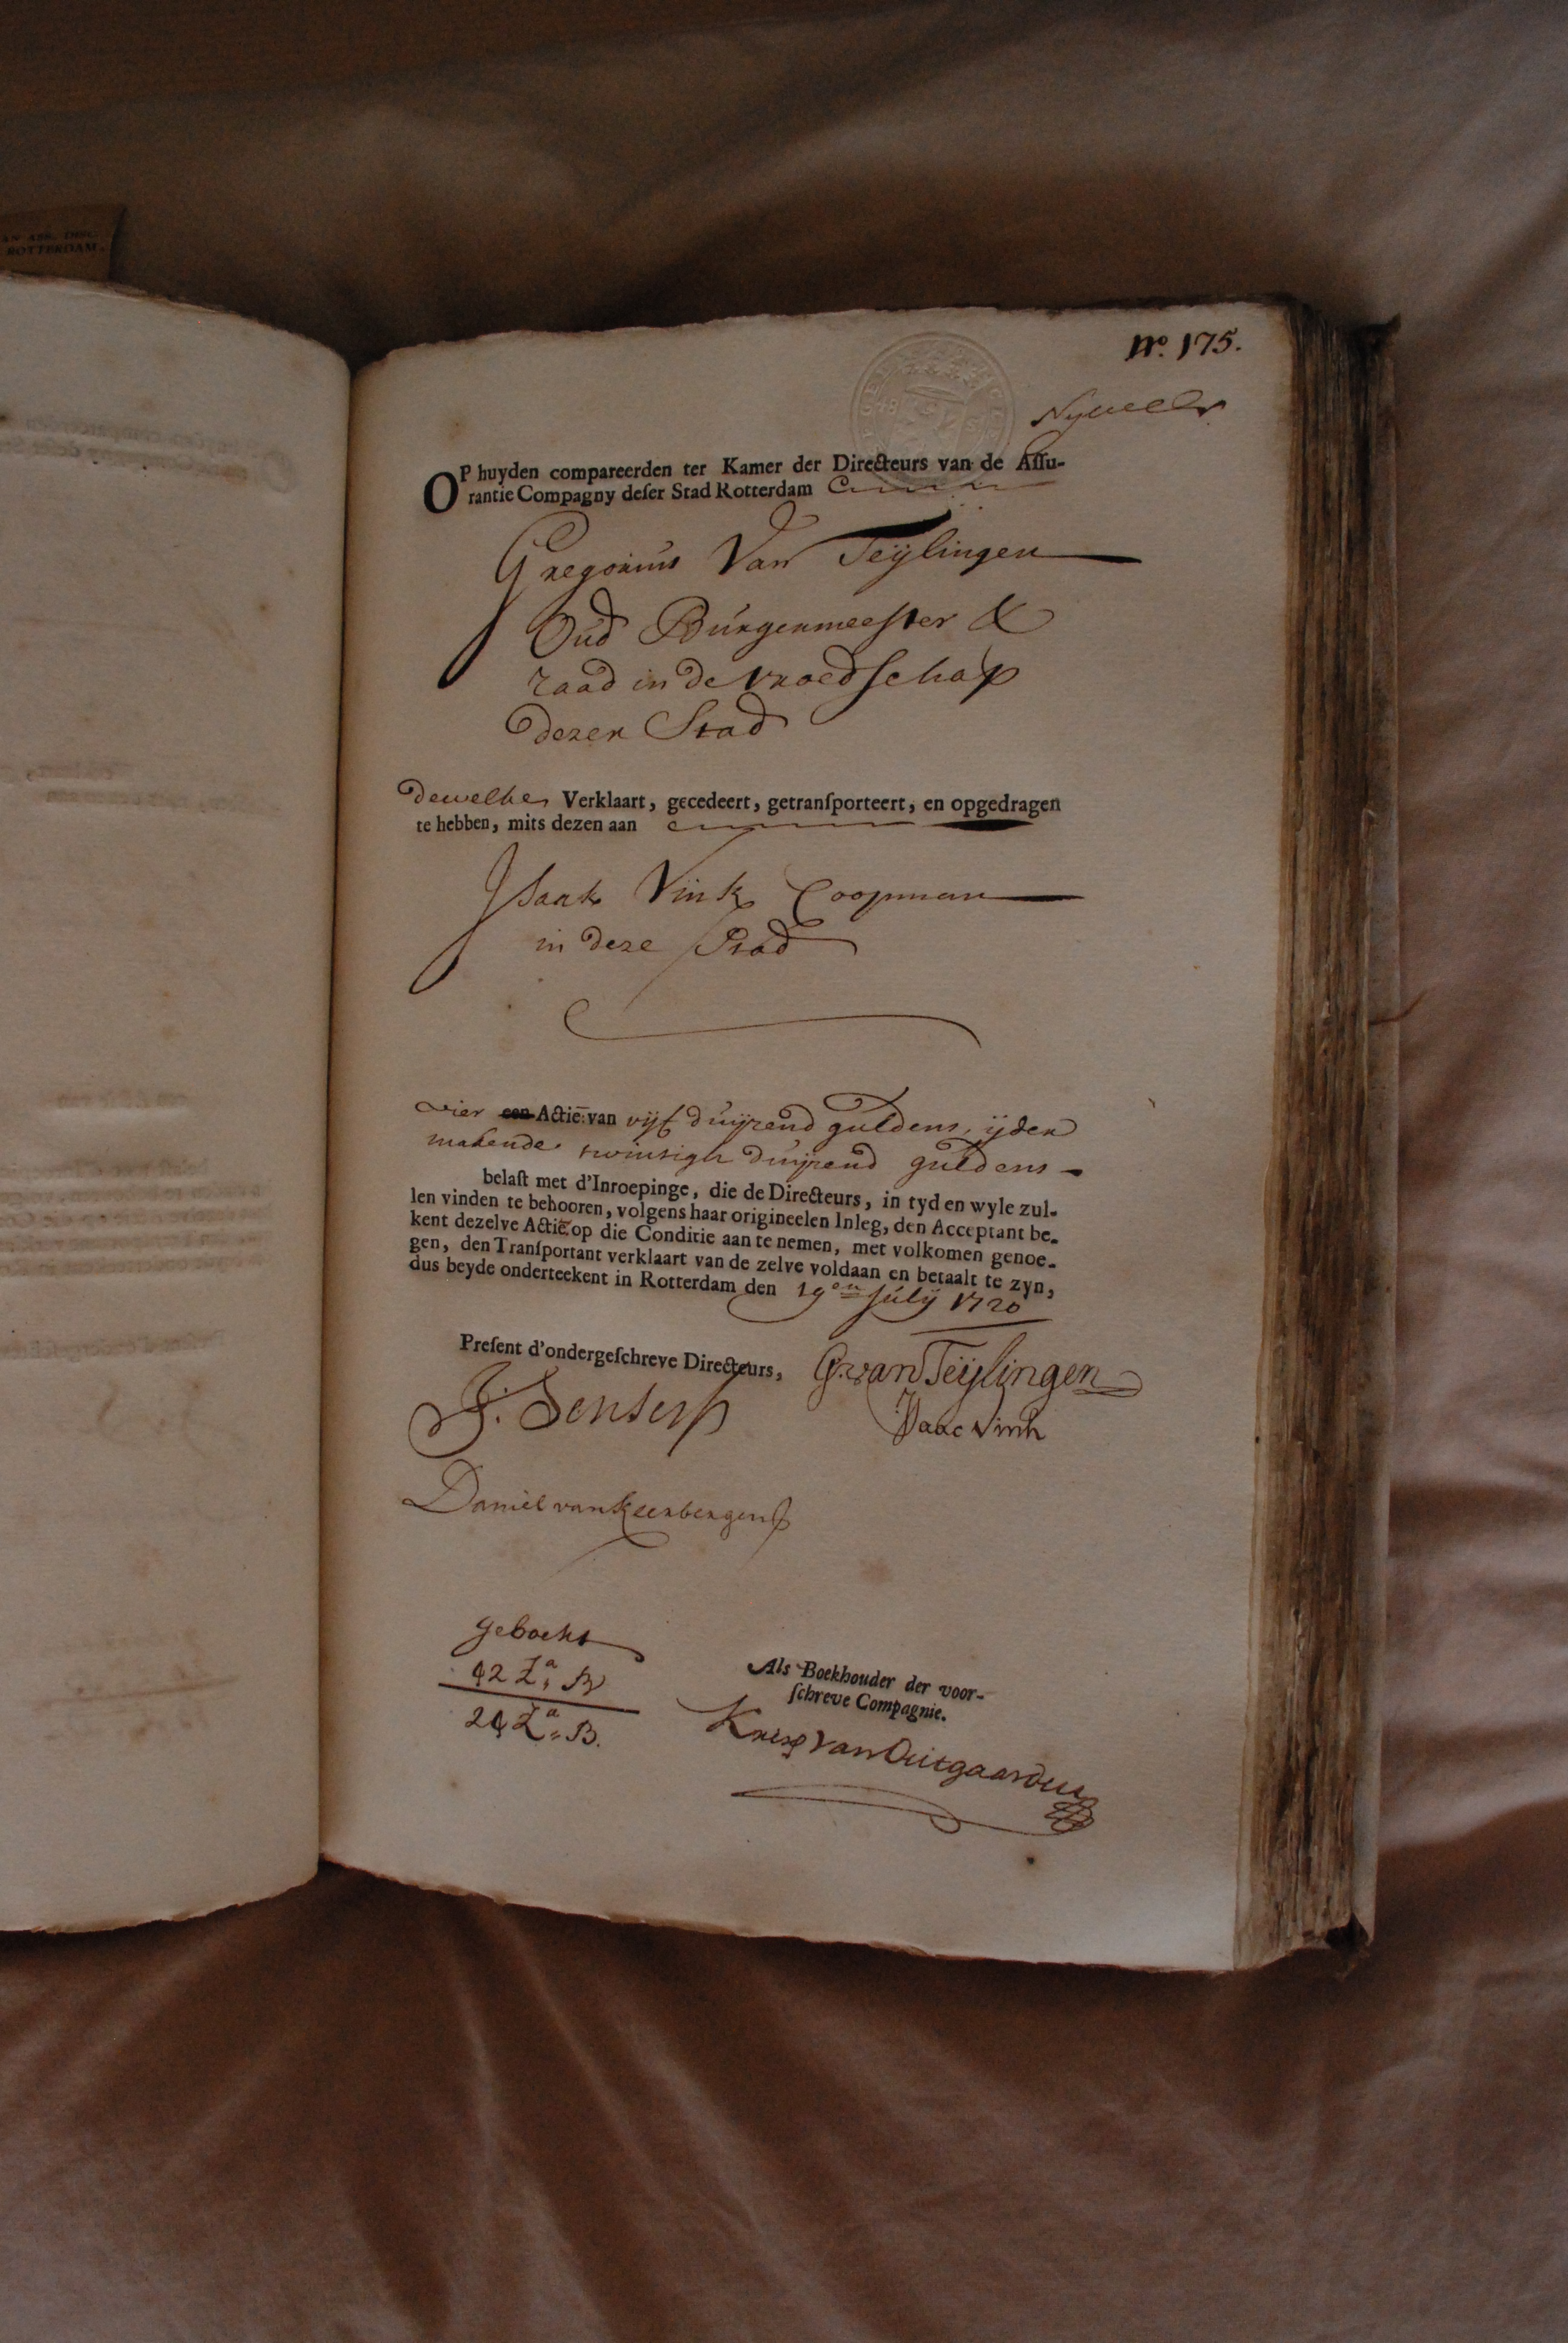 AN ASS. DISC.
ROTTERDAM.
No. 175.
OP huyden compareerden ter Kamer der Directeurs van de Aſſu-
rantie Compagny deſer Stad Rotterdam
Gregorius Van Teijlingen
Oud Burgermeester &
raad in de vroedschap
dezer Stad
dewelke Verklaart, gecedeert, getranſporteert, en opgedragen
te hebben, mits dezen aan
Isaak Vink Coopman
in deze Stad
vier een Actie: van vijf duijzend guldens, ijder
makende twintigh duijzend guldens
belaſt met d'Inroepinge, die de Directeurs, in tyd en wyle zul-
len vinden te behooren, volgens haar origineelen Inleg, den Acceptant be-
kent dezelve Actie op die Conditie aan te nemen, met volkomen genoe-
gen, den Tranſportant verklaart van de zelve voldaan en betaalt te zyn,
dus beyde onderteekent in Rotterdam den 19en Julij 1720
Preſent d'ondergeſchreve Directeurs, G. van Teijlingen
J. Senserff
Isaac Vink
Daniel van Keerbergen
geboekt
42 Za, B
24 Za = B.
Als Boekhouder der voor-
ſchreve Compagnie.
van Outgaarden